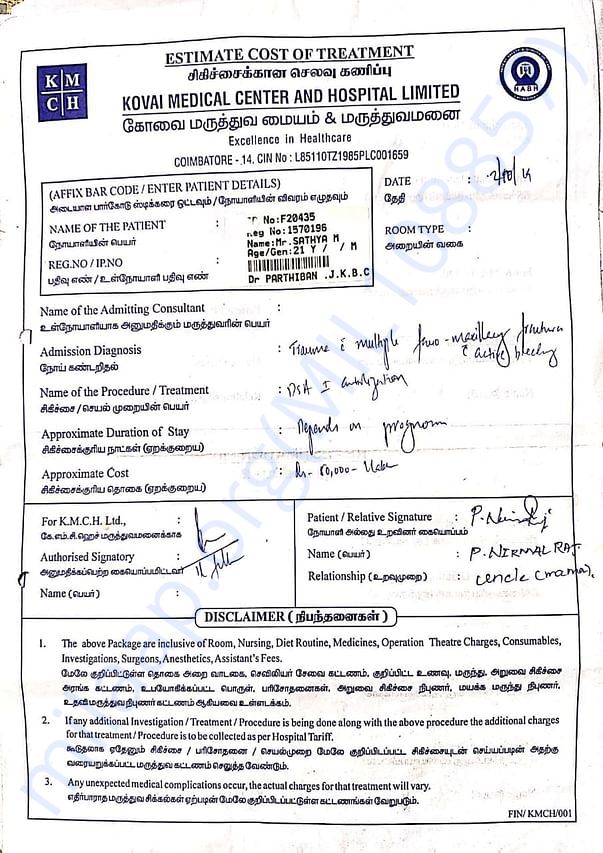 ESTIMATE COST OF TREATMENT
சிகிச்சைக்கான செலவு கணிப்பு
K M
C H
NABH
KOVAI MEDICAL CENTER AND HOSPITAL LIMITED
கோவை மருத்துவ மையம் & மருத்துவமனை
Excellence in Healthcare
COIMBATORE - 14, CIN No : L85110TZ1985PLC001659
(AFFIX BAR CODE / ENTER PATIENT DETAILS)
அடையாள பார்கோடு ஸ்டிக்கரை ஒட்டவும் / நோயாளியின் விவரம் எழுதவும்
NAME OF THE PATIENT :
நோயாளியின் பெயர்
REG.NO / IP.NO :
பதிவு எண் / உள்நோயாளி பதிவு எண்
No:F20435
Reg No:1570196
Name:Mr.SATHYA M
Age/Gen:21 Y / / M
Dr PARTHIBAN .J.K.B.C
DATE :
தேதி
ROOM TYPE :
அறையின் வகை
Name of the Admitting Consultant :
உள்நோயாளியாக அனுமதிக்கும் மருத்துவரின் பெயர்
Admission Diagnosis : Trauma multiple maxillary & active bleeding
நோய் கண்டறிதல்
Name of the Procedure / Treatment : DSA
சிகிச்சை / செயல் முறையின் பெயர்
Approximate Duration of Stay : Depends on
சிகிச்சைக்குரிய நாட்கள் (ஏறக்குறைய)
Approximate Cost :
சிகிச்சைக்குரிய தொகை (ஏறக்குறைய)
For K.M.C.H. Ltd., :
கே.எம்.சி.ஹெச் மருத்துவமனைக்காக
Authorised Signatory :
அனுமதிக்கப்பெற்ற கையொப்பமிட்டவர்
Name (பெயர்) :
Patient / Relative Signature :
நோயாளி அல்லது உறவினர் கையொப்பம்
Name (பெயர்) : P. NIRMAL RAJ
Relationship (உறவுமுறை) : uncle (mama).
DISCLAIMER ( நிபந்தனைகள் )
1. The above Package are inclusive of Room, Nursing, Diet Routine, Medicines, Operation Theatre Charges, Consumables,
Investigations, Surgeons, Anesthetics, Assistant's Fees.
மேலே குறிப்பிட்டுள்ள தொகை அறை வாடகை, செவிலியர் சேவை கட்டணம், குறிப்பிட்ட உணவு, மருந்து, அறுவை சிகிச்சை
அரங்க கட்டணம், உபயோகிக்கப்பட்ட பொருள், பரிசோதனைகள், அறுவை சிகிச்சை நிபுணர், மயக்க மருந்து நிபுணர்,
உதவி மருத்துவ நிபுணர் கட்டணம் ஆகியவை உள்ளடக்கம்.
2. If any additional Investigation / Treatment / Procedure is being done along with the above procedure the additional charges
for that treatment / Procedure is to be collected as per Hospital Tariff.
கூடுதலாக ஏதேனும் சிகிச்சை / பரிசோதனை / செயல்முறை மேலே குறிப்பிடப்பட்ட சிகிச்சையுடன் செய்யப்படின் அதற்கு
வரையறுக்கப்பட்ட மருத்துவ கட்டணம் செலுத்த வேண்டும்.
3. Any unexpected medical complications occur, the actual charges for that treatment will vary.
எதிர்பாராத மருத்துவ சிக்கல்கள் ஏற்படின் மேலே குறிப்பிடப்பட்டுள்ள கட்டணங்கள் வேறுபடும்.
FIN/ KMCH/001